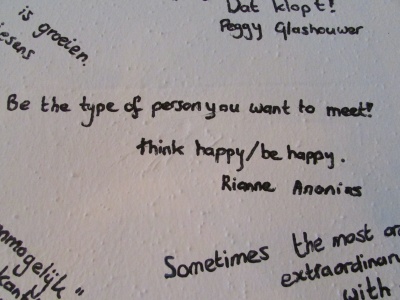 is groeien.
Dat klopt!
Peggy Glashouwer
Be the type of person you want to meet!
think happy/be happy.
Rianne Anonies
Sometimes the most
extraordinar
with